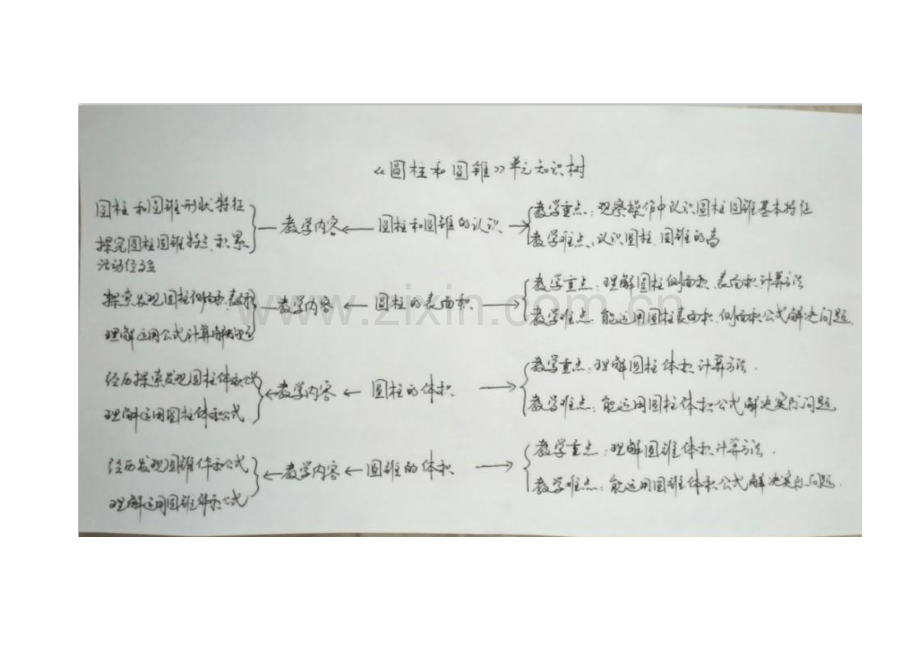 《圆柱和圆锥》单元知识树
圆柱和圆锥形状特征
探究圆柱圆锥特点、积累
活动经验
教学内容
圆柱和圆锥的认识
教学重点：观察操作中认识圆柱圆锥基本特征
教学难点：认识圆柱、圆锥的高
探索发现圆柱侧面、表面
理解运用公式计算解决
教学内容
圆柱的表面积
教学重点：理解圆柱侧面积、表面积计算方法
教学难点：能运用圆柱表面积、侧面积公式解决问题
经历探索发现圆柱体积公式
理解运用圆柱体积公式
教学内容
圆柱的体积
教学重点：理解圆柱体积计算方法.
教学难点：能运用圆柱体积公式解决实际问题.
经历发现圆锥体积公式
理解运用圆锥体积公式
教学内容
圆锥的体积
教学重点：理解圆锥体积计算方法.
教学难点：能运用圆锥体积公式解决实际问题.
www.zixin.com.cn